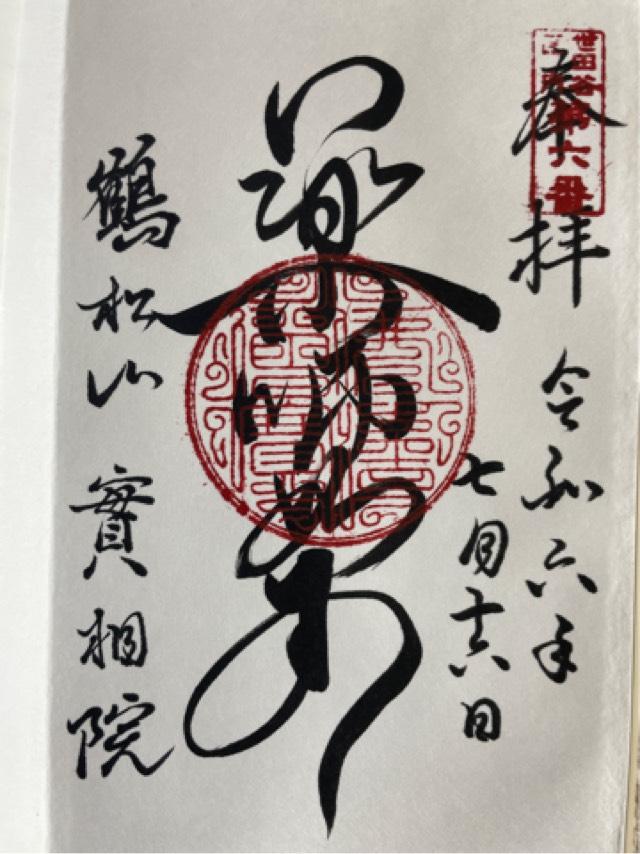 世田谷
第六番
奉拝
令和六年
七月十六日
薬師如来
鶴松山 實相院